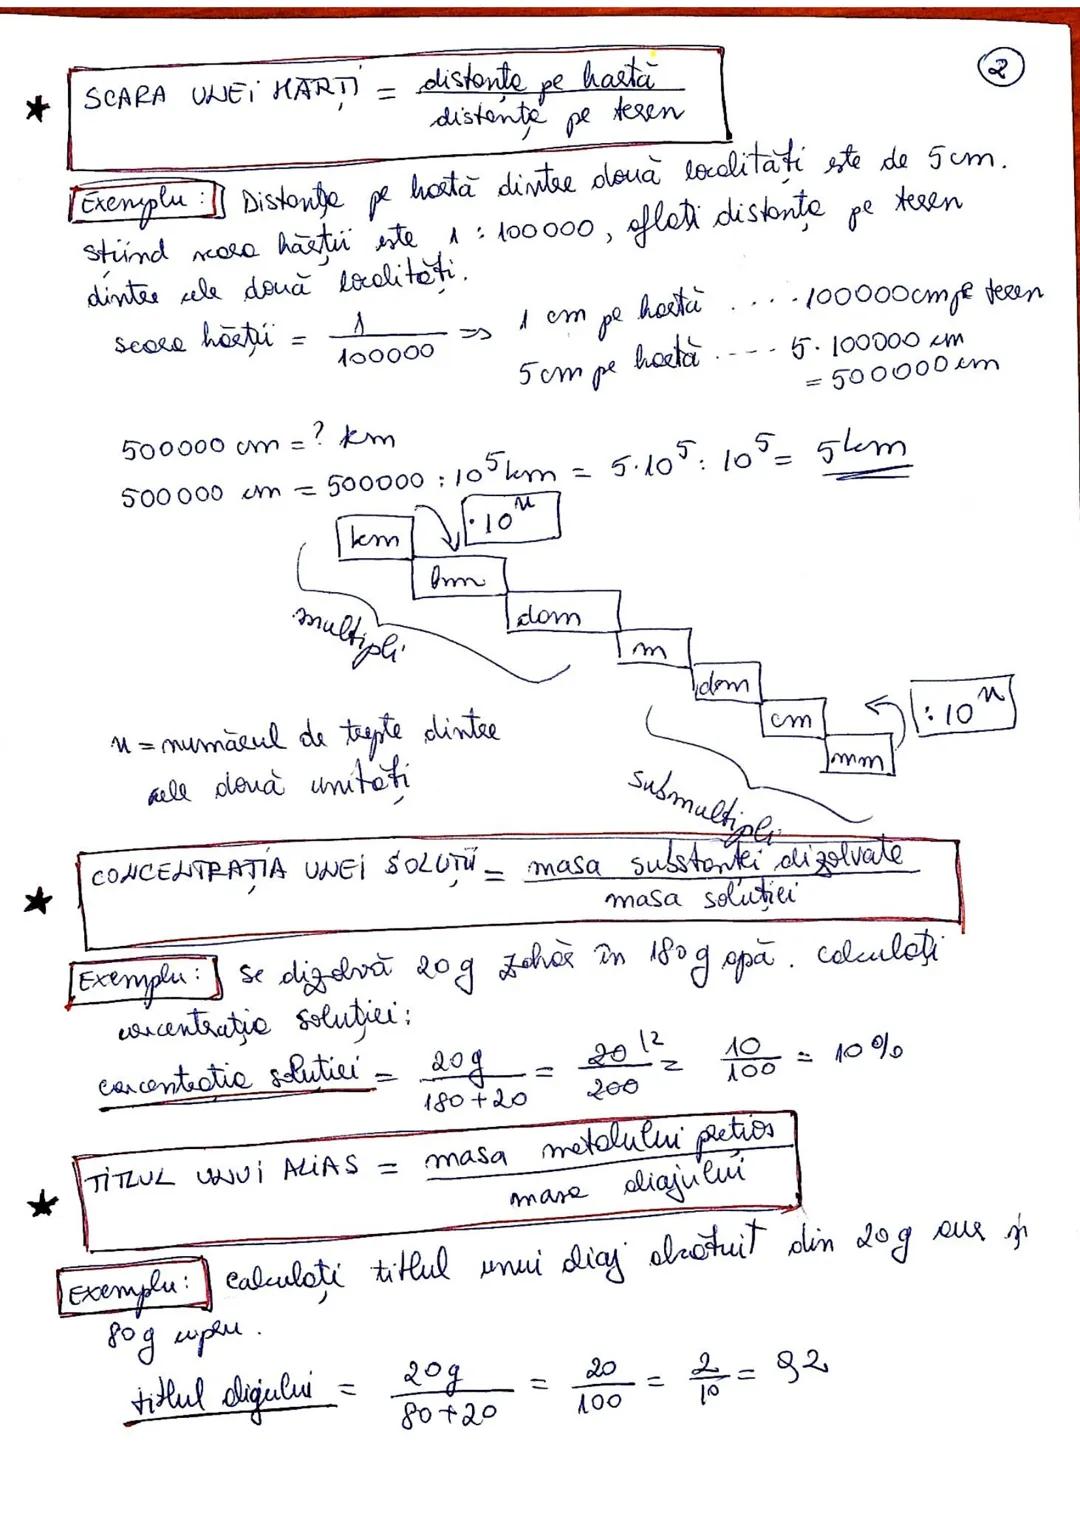 2
* SCARA UNEI HĂRȚI = distanța pe hartă / distanța pe teren
Exemplu: Distanța pe hartă dintre două localități este de 5cm.
știind scara hărții este 1 : 100000, aflați distanța pe teren
dintre cele două localități.
scara hărții = 1/100000 => 1 cm pe hartă ....100000cm pe teren
5cm pe hartă ---- 5·100000 cm
= 500000cm
500000 cm = ? km
500000 cm = 500000 : 10^5 km = 5·10^5 : 10^5 = 5km
km ·10^n
hm
dam
multipli
m
dm
cm :10^n
mm
n = numărul de trepte dintre
cele două unități
submultipli
* CONCENTRAȚIA UNEI SOLUȚII = masa substanței dizolvate / masa soluției
Exemplu: Se dizolvă 20g zahăr în 180g apă. Calculați
concentrația soluției:
concentrația soluției = 20g / 180+20 = 20 / 200 (2 = 10/100 = 10%
* TITLUL UNUI ALIAS = masa metalului prețios / masa aliajului
Exemplu: Calculați titlul unui aliaj alcătuit din 20g aur și
80g cupru.
titlul aliajului = 20g / 80+20 = 20/100 = 2/10 = 0,2